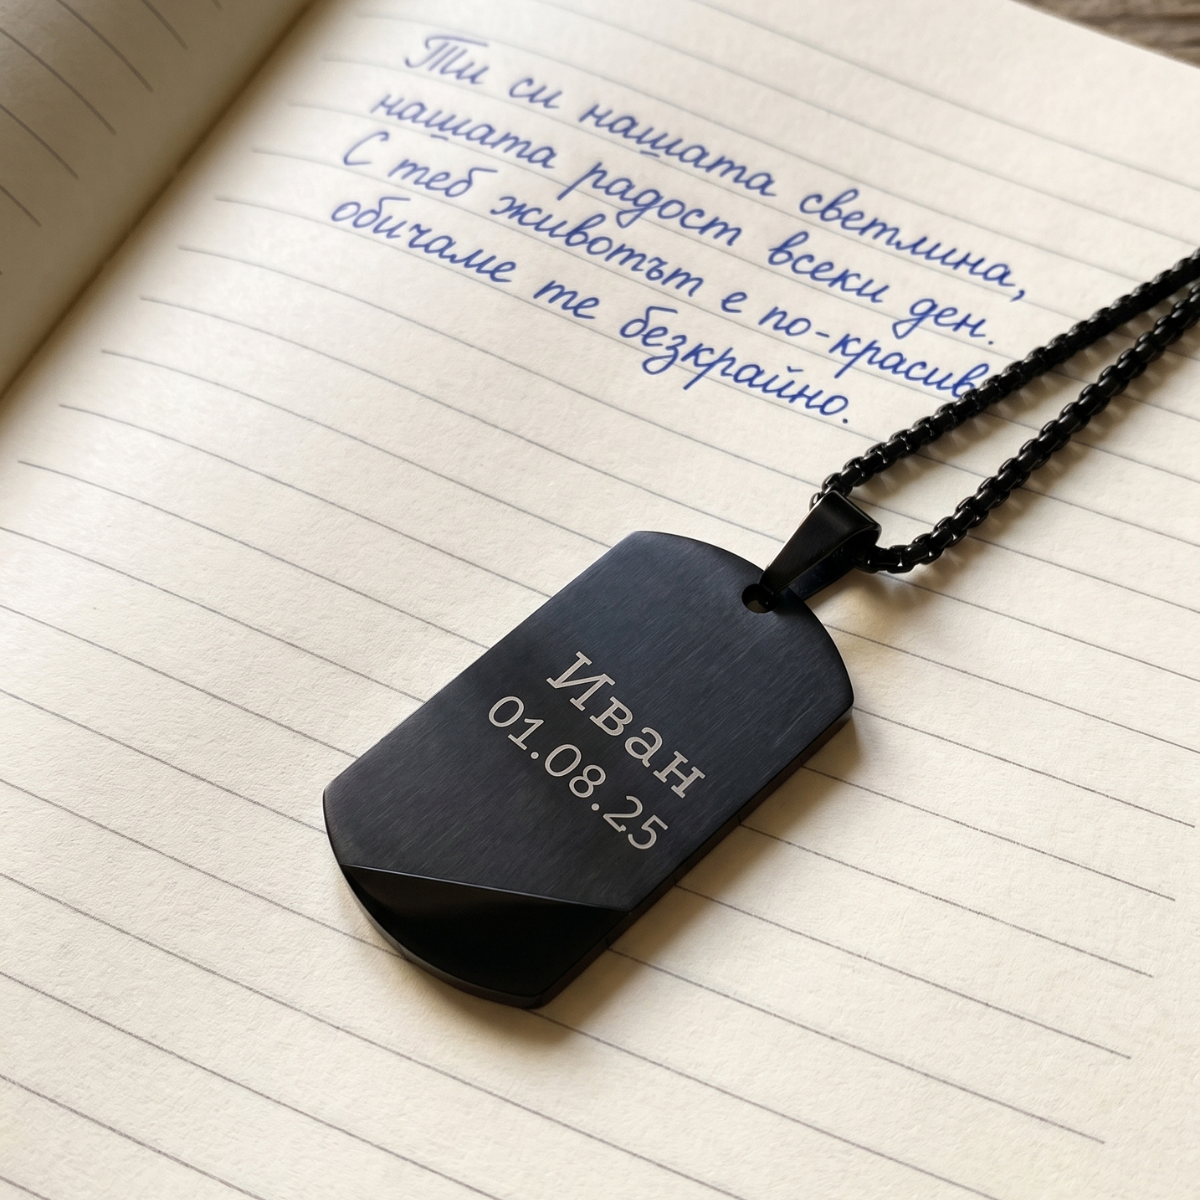 Ти си нашата светлина,
нашата радост всеки ден.
С теб животът е по-красив
обичаме те безкрайно.
Иван
01.08.25